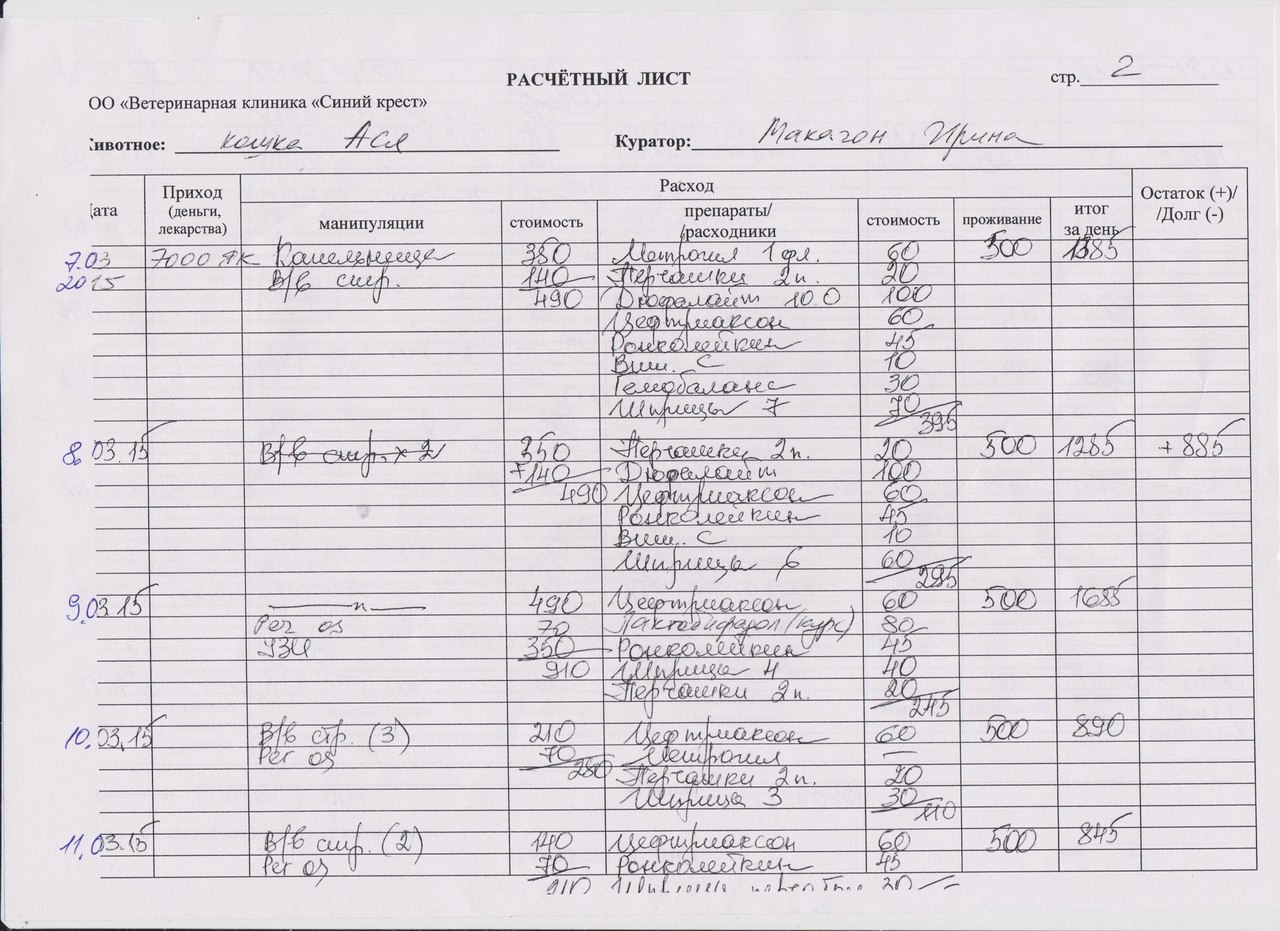 РАСЧЁТНЫЙ ЛИСТ стр. 2
ОО «Ветеринарная клиника «Синий крест»
Животное: кошка Ася Куратор: Макагон Ирина
Дата Приход (деньги, лекарства) Расход Остаток (+)/ /Долг (-)
манипуляции стоимость препараты/ расходники стоимость проживание итог за день
7.03 7000 Капельница 350 Метрогил 1 фл. 60 500 1385
2015 В/в стр. 140 Перчатки 2п. 20
490 Дюфалайт 10.0 100
Цефтриаксон 60
Ронколейкин 45
Вит. С 10
Гемобаланс 30
Шприцы 7 70
395
8.03.15 В/в стр. × 2 350 Перчатки 2п. 20 500 1285 + 885
+140 Дюфалайт 100
490 Цефтриаксон 60
Ронколейкин 45
Вит. С 10
Шприцы 6 60
295
9.03.15 —— п —— 490 Цефтриаксон 60 500 1685
Per os 70 Лактобифадол (курс) 80
УЗИ 350 Ронколейкин 45
910 Шприцы 4 40
Перчатки 2п. 20
245
10.03.15 В/в стр. (3) 210 Цефтриаксон 60 500 890
Per os 70 Метрогил —
280 Перчатки 2п. 20
Шприца 3 30
110
11.03.15 В/в стр. (2) 140 Цефтриаксон 60 500 845
Per os 70 Ронколейкин 45